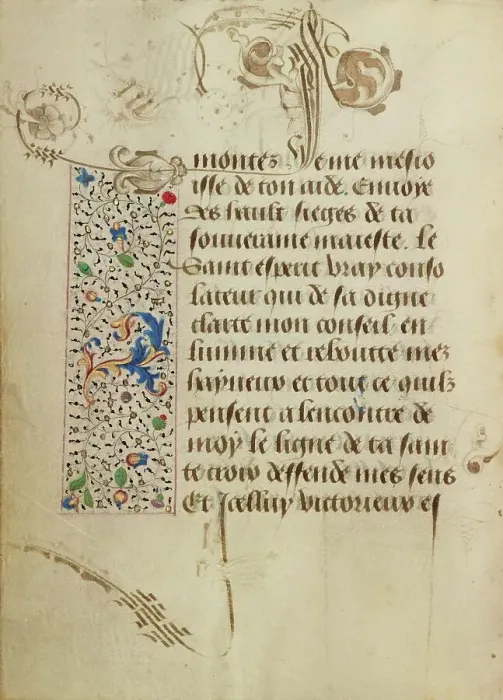 montez Je me mesio
isse de ton aide. Enuoye
Des hault sieges de ta
souueraine maieste. Le
Saint esperit vray conso
lateur qui de sa digne
clarte mon conseil en
lumine et reboutte mez
hayneux et tout ce quilz
pensent a lencontre de
moy le signe de ta sain
te croix deffende mes sens
Et Jcelluy victorieux es